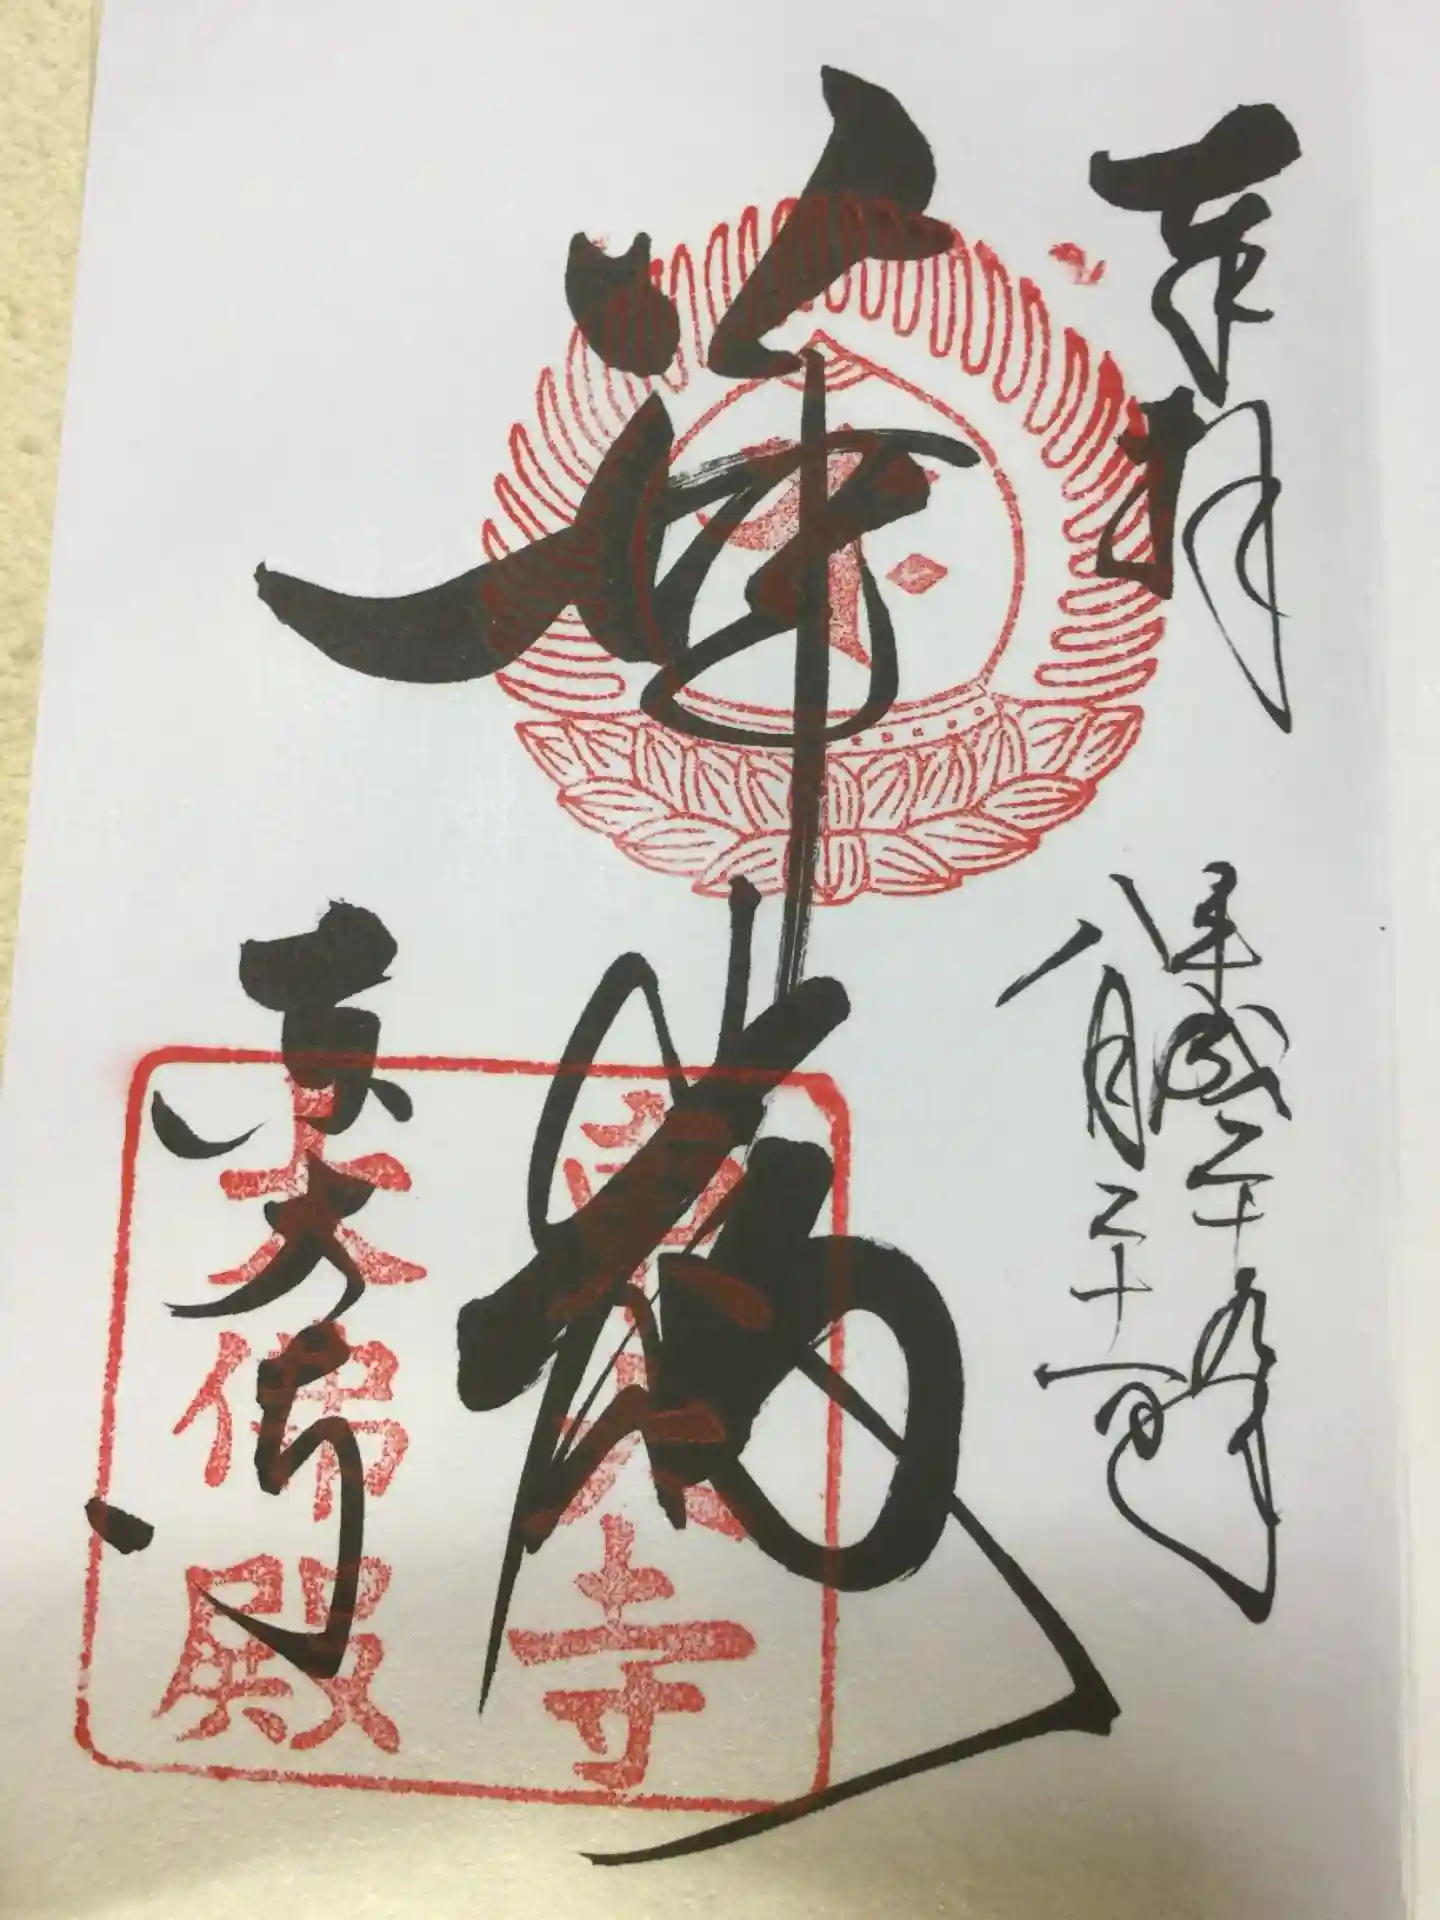 奉拝
平成二十九年
八月二十一日
華厳
東大寺
東大寺
大佛殿